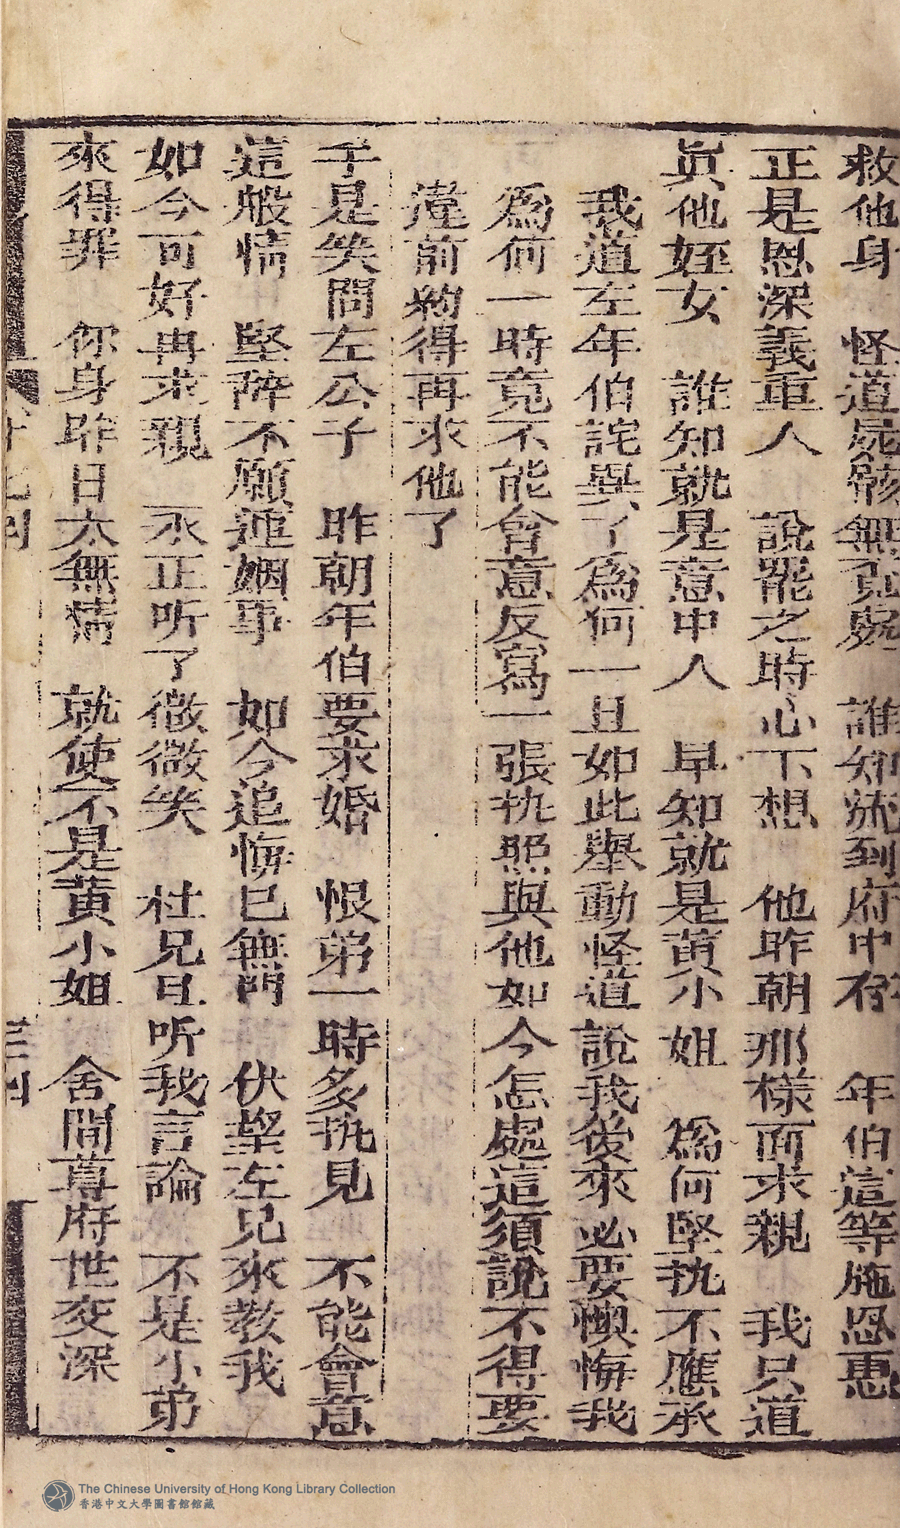 救他身　怪道屍骸無覔處　誰知流到府中存　年伯這等施恩惠
正是恩深義重人　說罷之時心下想　他昨朝那樣面求親　我只道
眞他姪女　誰知就是意中人　早知就是黃小姐　爲何堅执不應承
我道左年伯詫異了爲何一旦如此舉動怪道說我後來必要懊悔我
爲何一時竟不能會意反寫一張执照與他如今怎處這須說不得要
違前約得再求他了
于是笑問左公子　昨朝年伯要求婚　恨弟一時多执見　不能會意
這般情　堅辞不願連姻事　如今追悔已無門　伏望左兄來教我
如今可好再求親　永正听了微微笑　杜兄且听我言論　不是小弟
來得罪　你身昨日太無情　就使不是黃小姐　舍間尊府世交深
三四
The Chinese University of Hong Kong Library Collection
香港中文大學圖書館館藏